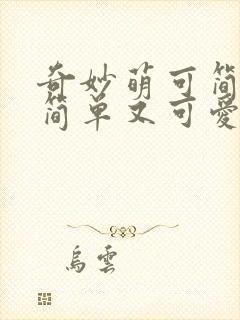 奇妙萌可简
简单又可爱
烏雲